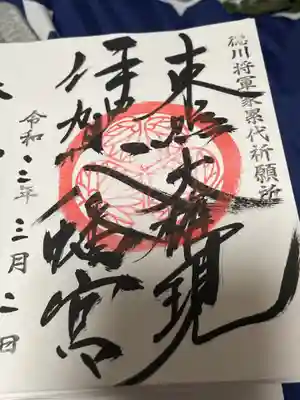 徳川将軍家累代祈願所
東照大権現
伊賀八幡宮
令和三年三月二日